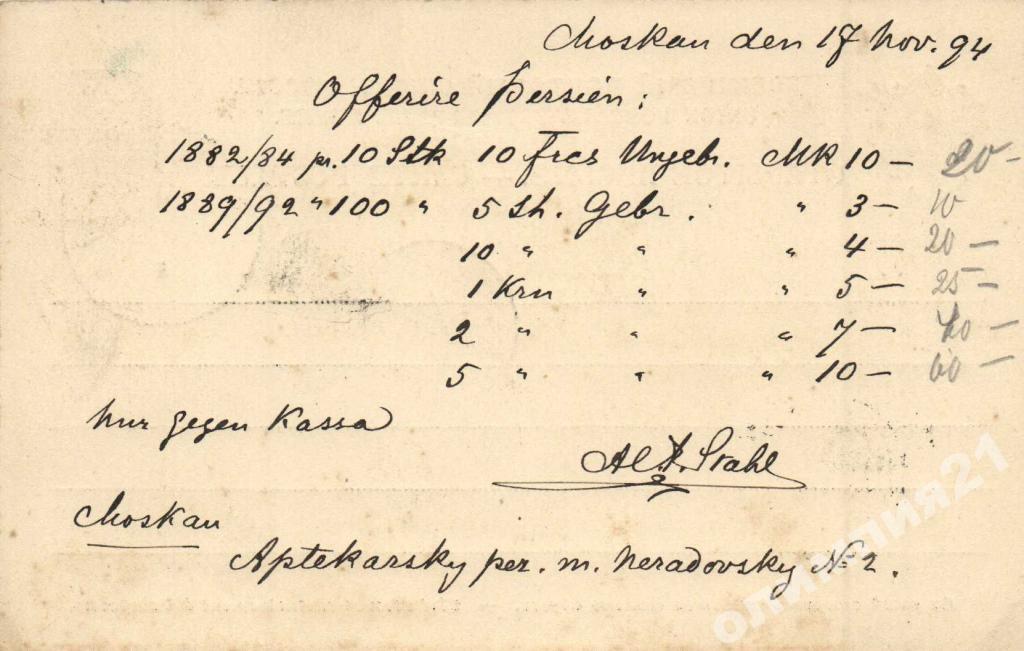 Moskau den 17 Nov. 94
Offerire Persien:
1882/84 pr. 10 Stk 10 Frcs Ungebr. MK 10 — 20 —
1889/92 " 100 " 5 Sh. Gebr. " 3 — 10
10 " " " 4 — 20 —
1 Krn " " 5 — 25 —
2 " " " 7 — —
5 " " " 10 — 60 —
Nur gegen Kassa
Stahl
Moskau
Aptekarsky per. m. Neradovsky № 2.
олимпия21